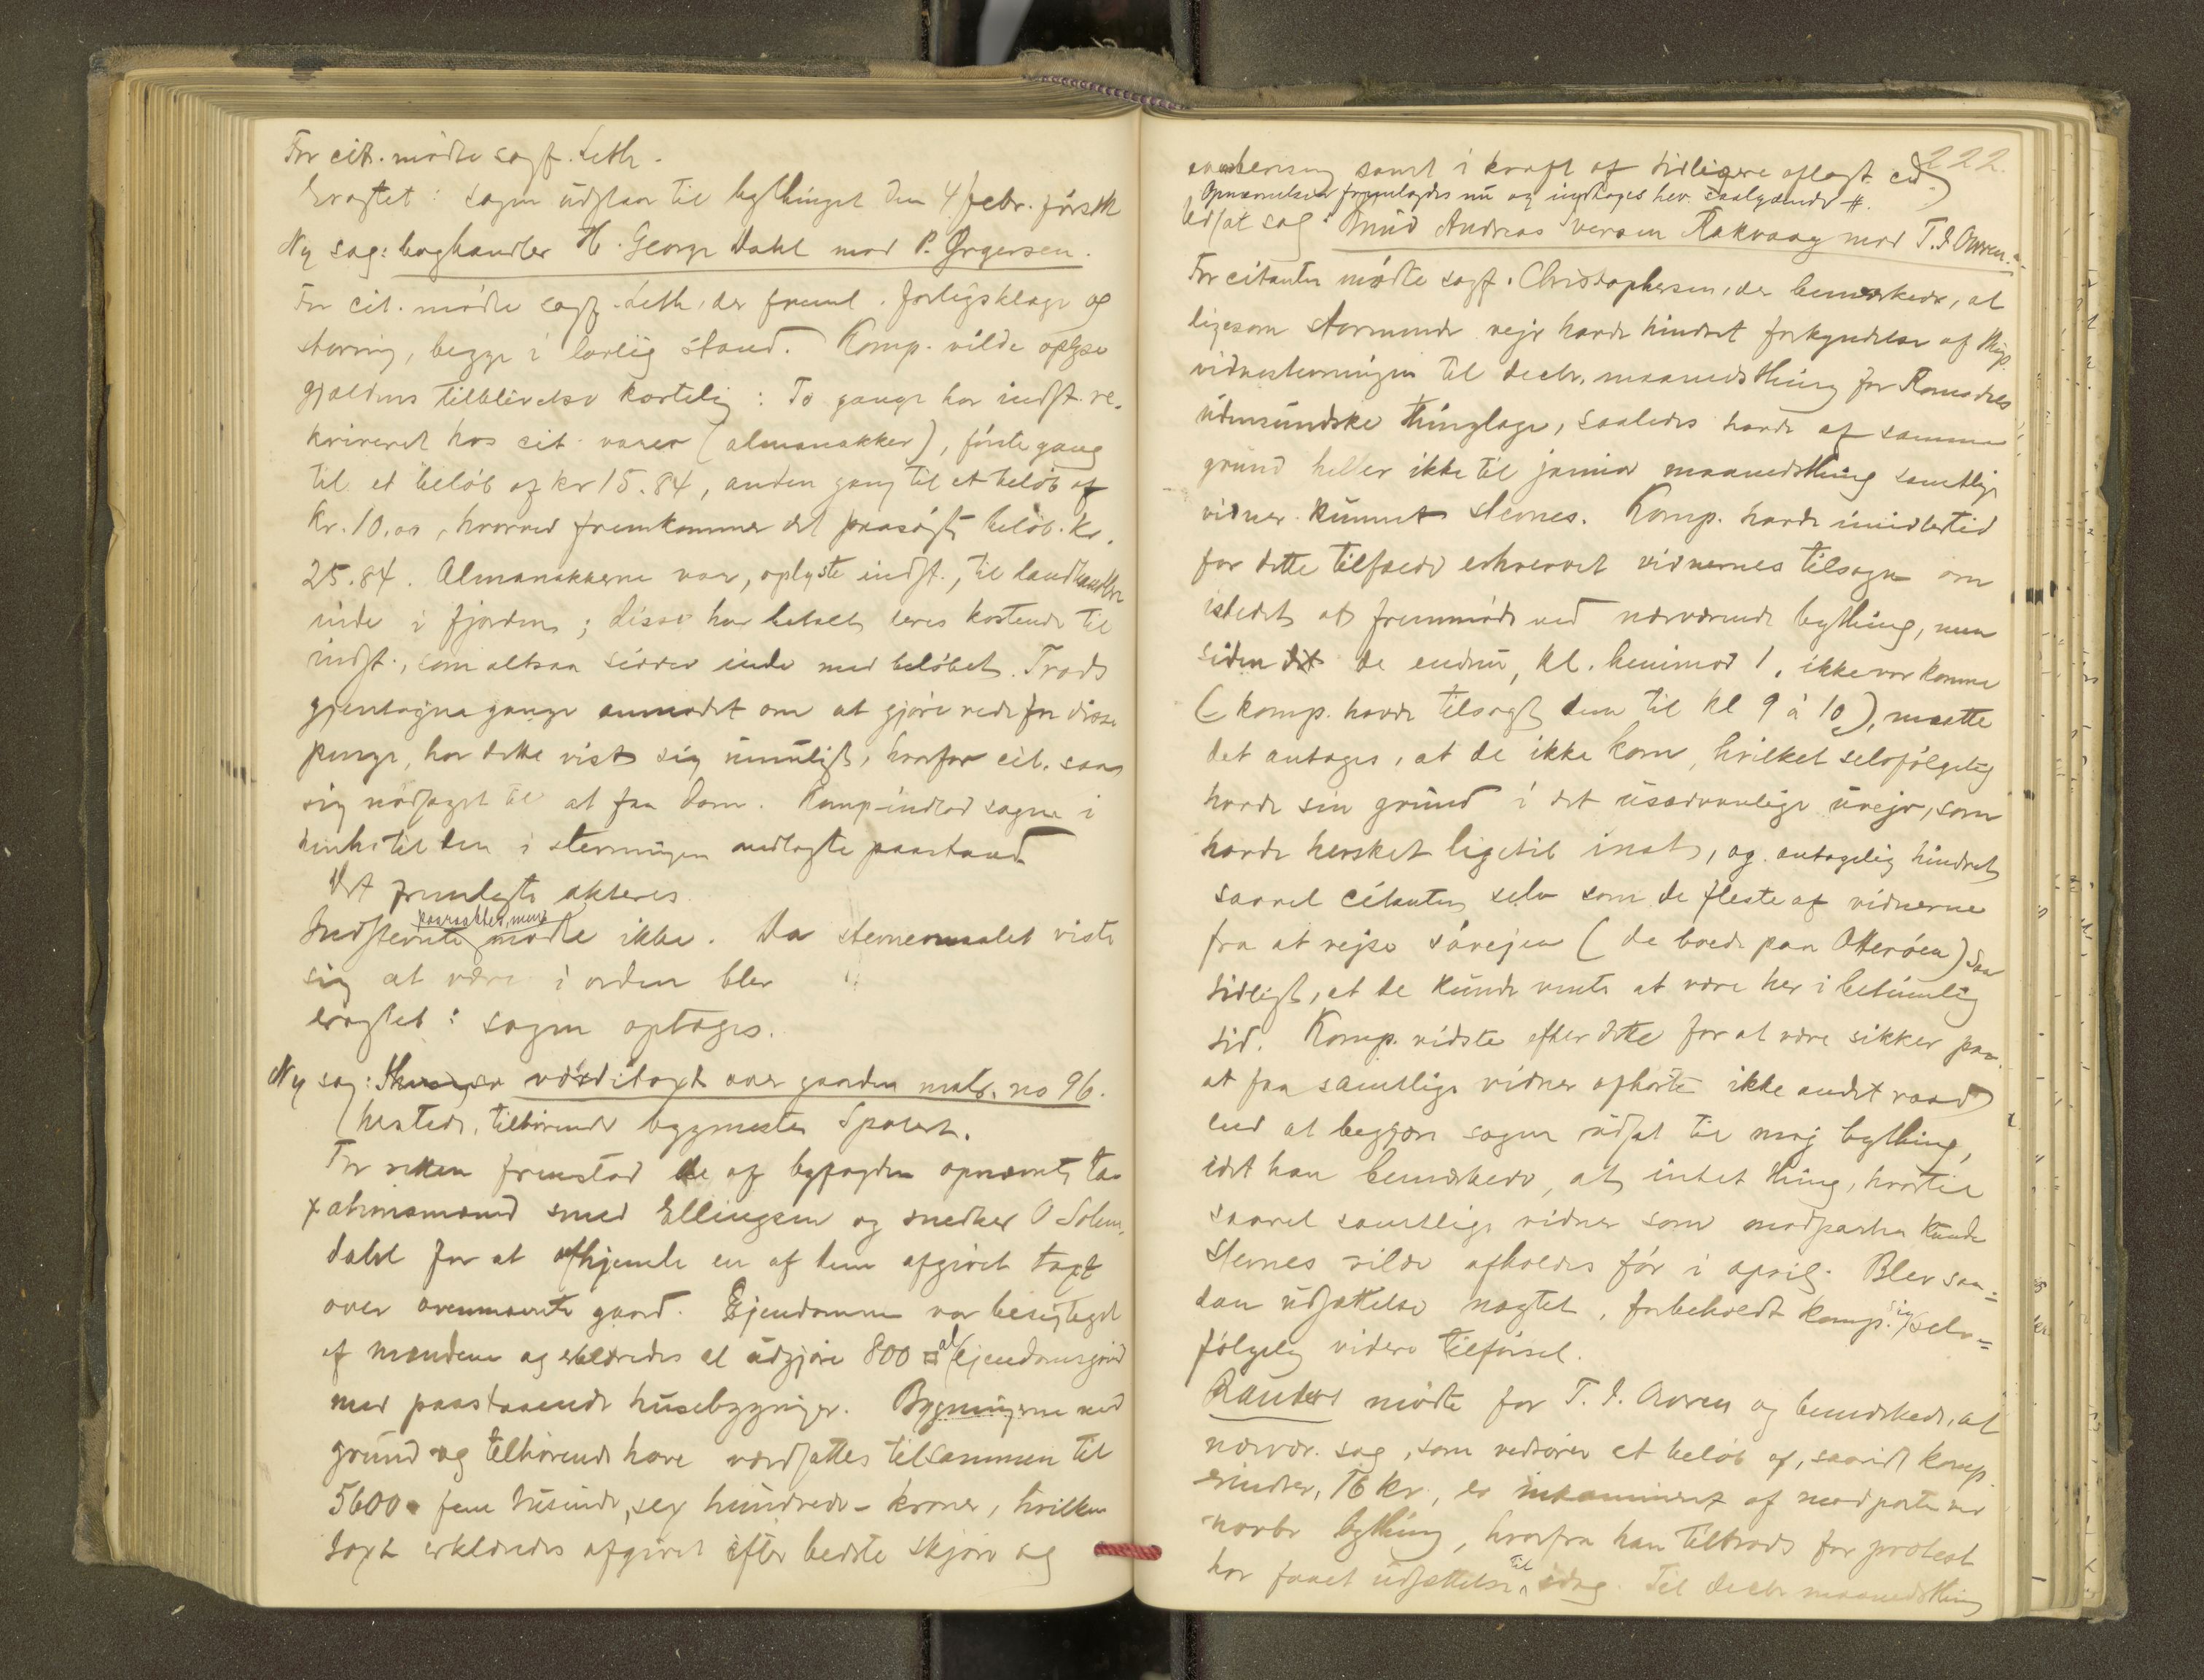 For cit. mødte sagf. Leth.
Eragtet: sagen udstaar til bythinget den 4 febr. førstk
Ny sag: boghandler H. George Dahl mod P. Ørgersen.
For cit. mødte sagf. Leth, der freml. forligsklage og
stevning, begge i lovlig stand. Komp. vilde oplyse
gjældens tilblivelse kortelig: To gange har indst. re-
kvireret hos cit. varer (almanakker), første gang
til et beløb af kr 15.84, anden gang til et beløb af
kr. 10.00, hvorved fremkommer det paasøgte beløb kr.
25.84. Almanakkerne var, oplyste indst., til landhandlere
inde i fjorden; disse har betalt deres kostende til
indst., som altsaa sidder inde med beløbet. Trods
gjentagne gange anmodet om at gjøre rede for disse
penge, har dette vist sig umuligt, hvorfor cit. saa
sig nødsaget til at faa dom. Komp. indlod sagen i
henh. til den i stevningen nedlagte paastand
Det fremlagte akteres.
paaraabtes, men
Indstevnte mødte ikke. Da stevnemaalet viste
sig at være i orden blev
eragtet: sagen optages.
Ny sag: værditaxt over gaarden matr. no 96.
hestede, tilhørende bygmester Spolert.
For retten fremstod de af byfogden opnævnte ta-
xationsmænd smed Ellingsen og snedker O Solem-
dahl for at afhjemle en af dem afgivet taxt
over ovennævnte gaard. Ejendommen var besigtiget
af mændene og erklæredes at udgjøre 800 □ al ejendomsgrund
med paastaaende husebygninger. Bygningerne med
grund og tilhørende have værdsattes tilsammen til
5600 fem tusinde, sex hundrede - kroner, hvilken
taxt erklæredes afgivet efter bedste skjøn og
222.
overbevisning samt i kraft af tidligere aflagt ed
Opnævnelsen fremlagdes nu og indtages her. saalydende #.
Udsat sag: Knud Andreas Iversen Rakvaag mod T. I Owren.
For citanten mødte sagf. Christophersen, der bemærkede, at
ligesom stormende vejr havde hindret forkyndelse af thgs.
vidnestevningen til decbr. maanedsthing for Romsdals
udensundske thinglage, saaledes havde af samme
grund heller ikke til januar maanedsthing samtlige
vidner kunnet stevnes. Komp. havde imidlertid
for dette tilfælde erhvervet vidnernes tilsagn om
istedet at fremmøde ved nærværende bything, men
siden de endnu, kl. henimod 1, ikke var komne
(komp. havde tilsagt dem til kl 9 à 10), maatte
det antages, at de ikke kom, hvilket selvfølgelig
havde sin grund i det usædvanlige uvejr, som
havde hersket ligetil inat, og antagelig hindret
saavel citanten selv som de fleste af vidnerne
fra at rejse søvejen (de boede paa Otterøen) saa
tidligt, at de kunde vente at være her i betimelig
tid. Komp. vidste efter dette for at være sikker paa
at faa samtlige vidner afhørte ikke andet raad
end at begjære sagen udsat til maj bything,
idet han bemærkede, at intet thing, hvortil
saavel samtlige vidner som modparten kunde
stevnes vilde afholdes før i april. Blev saa-
dan udsættelse nægtet, forbeholdt komp. sig selv-
følgelig videre tilførsel.
Randers mødte for T. I. Owren og bemærkede, at
nærvær. sag, som vedrører et beløb af, saavidt komp.
erindrer, 16 kr., er inkamineret af modparten ved
novbr bything, hvorfra han tiltrods for protest
har faaet udsættelse til idag. Til decbr maanedsthing